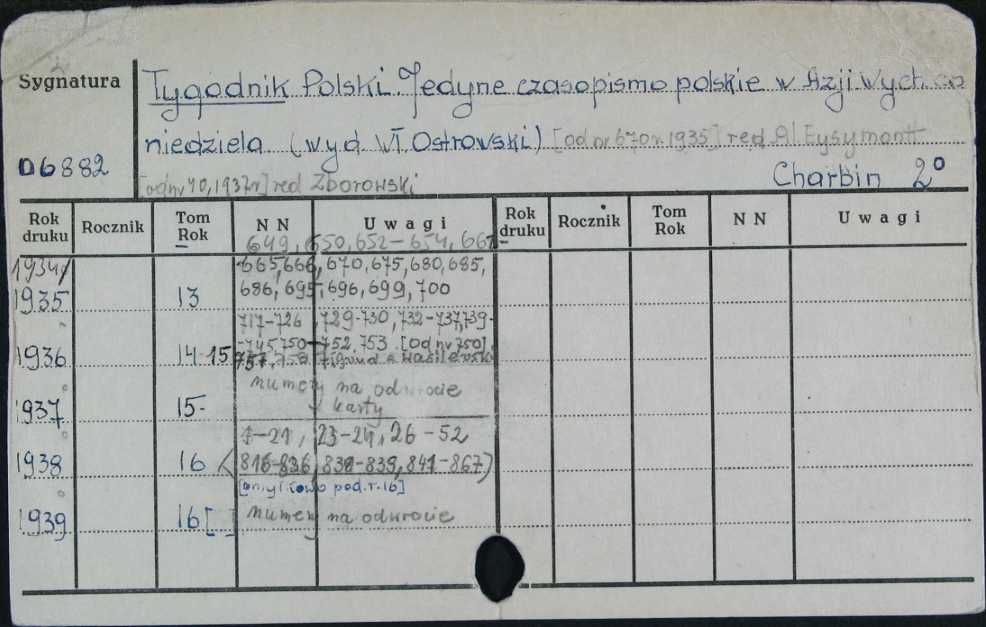 Sygnatura
Tygodnik Polski. Jedyne czasopismo polskie w Azji Wych. co
niedziela (wyd. Wł. Ostrowski) [od nr 670 r. 1935] red. Al. Eysymontt
D6882
[od nr 40, 1937 r] red Zborowski
Charbin 2°
Rok druku Rocznik Tom Rok NN Uwagi Rok druku Rocznik Tom Rok NN Uwagi
649, 650, 652-654, 667-
1934/ 665, 666, 670, 675, 680, 685,
1935 13 686, 695, 696, 699, 700
717-726, 729-730, 732-737, 739-
-745, 750-752, 753. [od nr 750]
1936 14-15 757, 758
numery na odwrocie
1937 15- karty
1-21, 23-24, 26-52
1938 16 (816-836, 838-839, 841-867)
[omyłkowo pod. r. 16]
1939 16[ ] numery na odwrocie